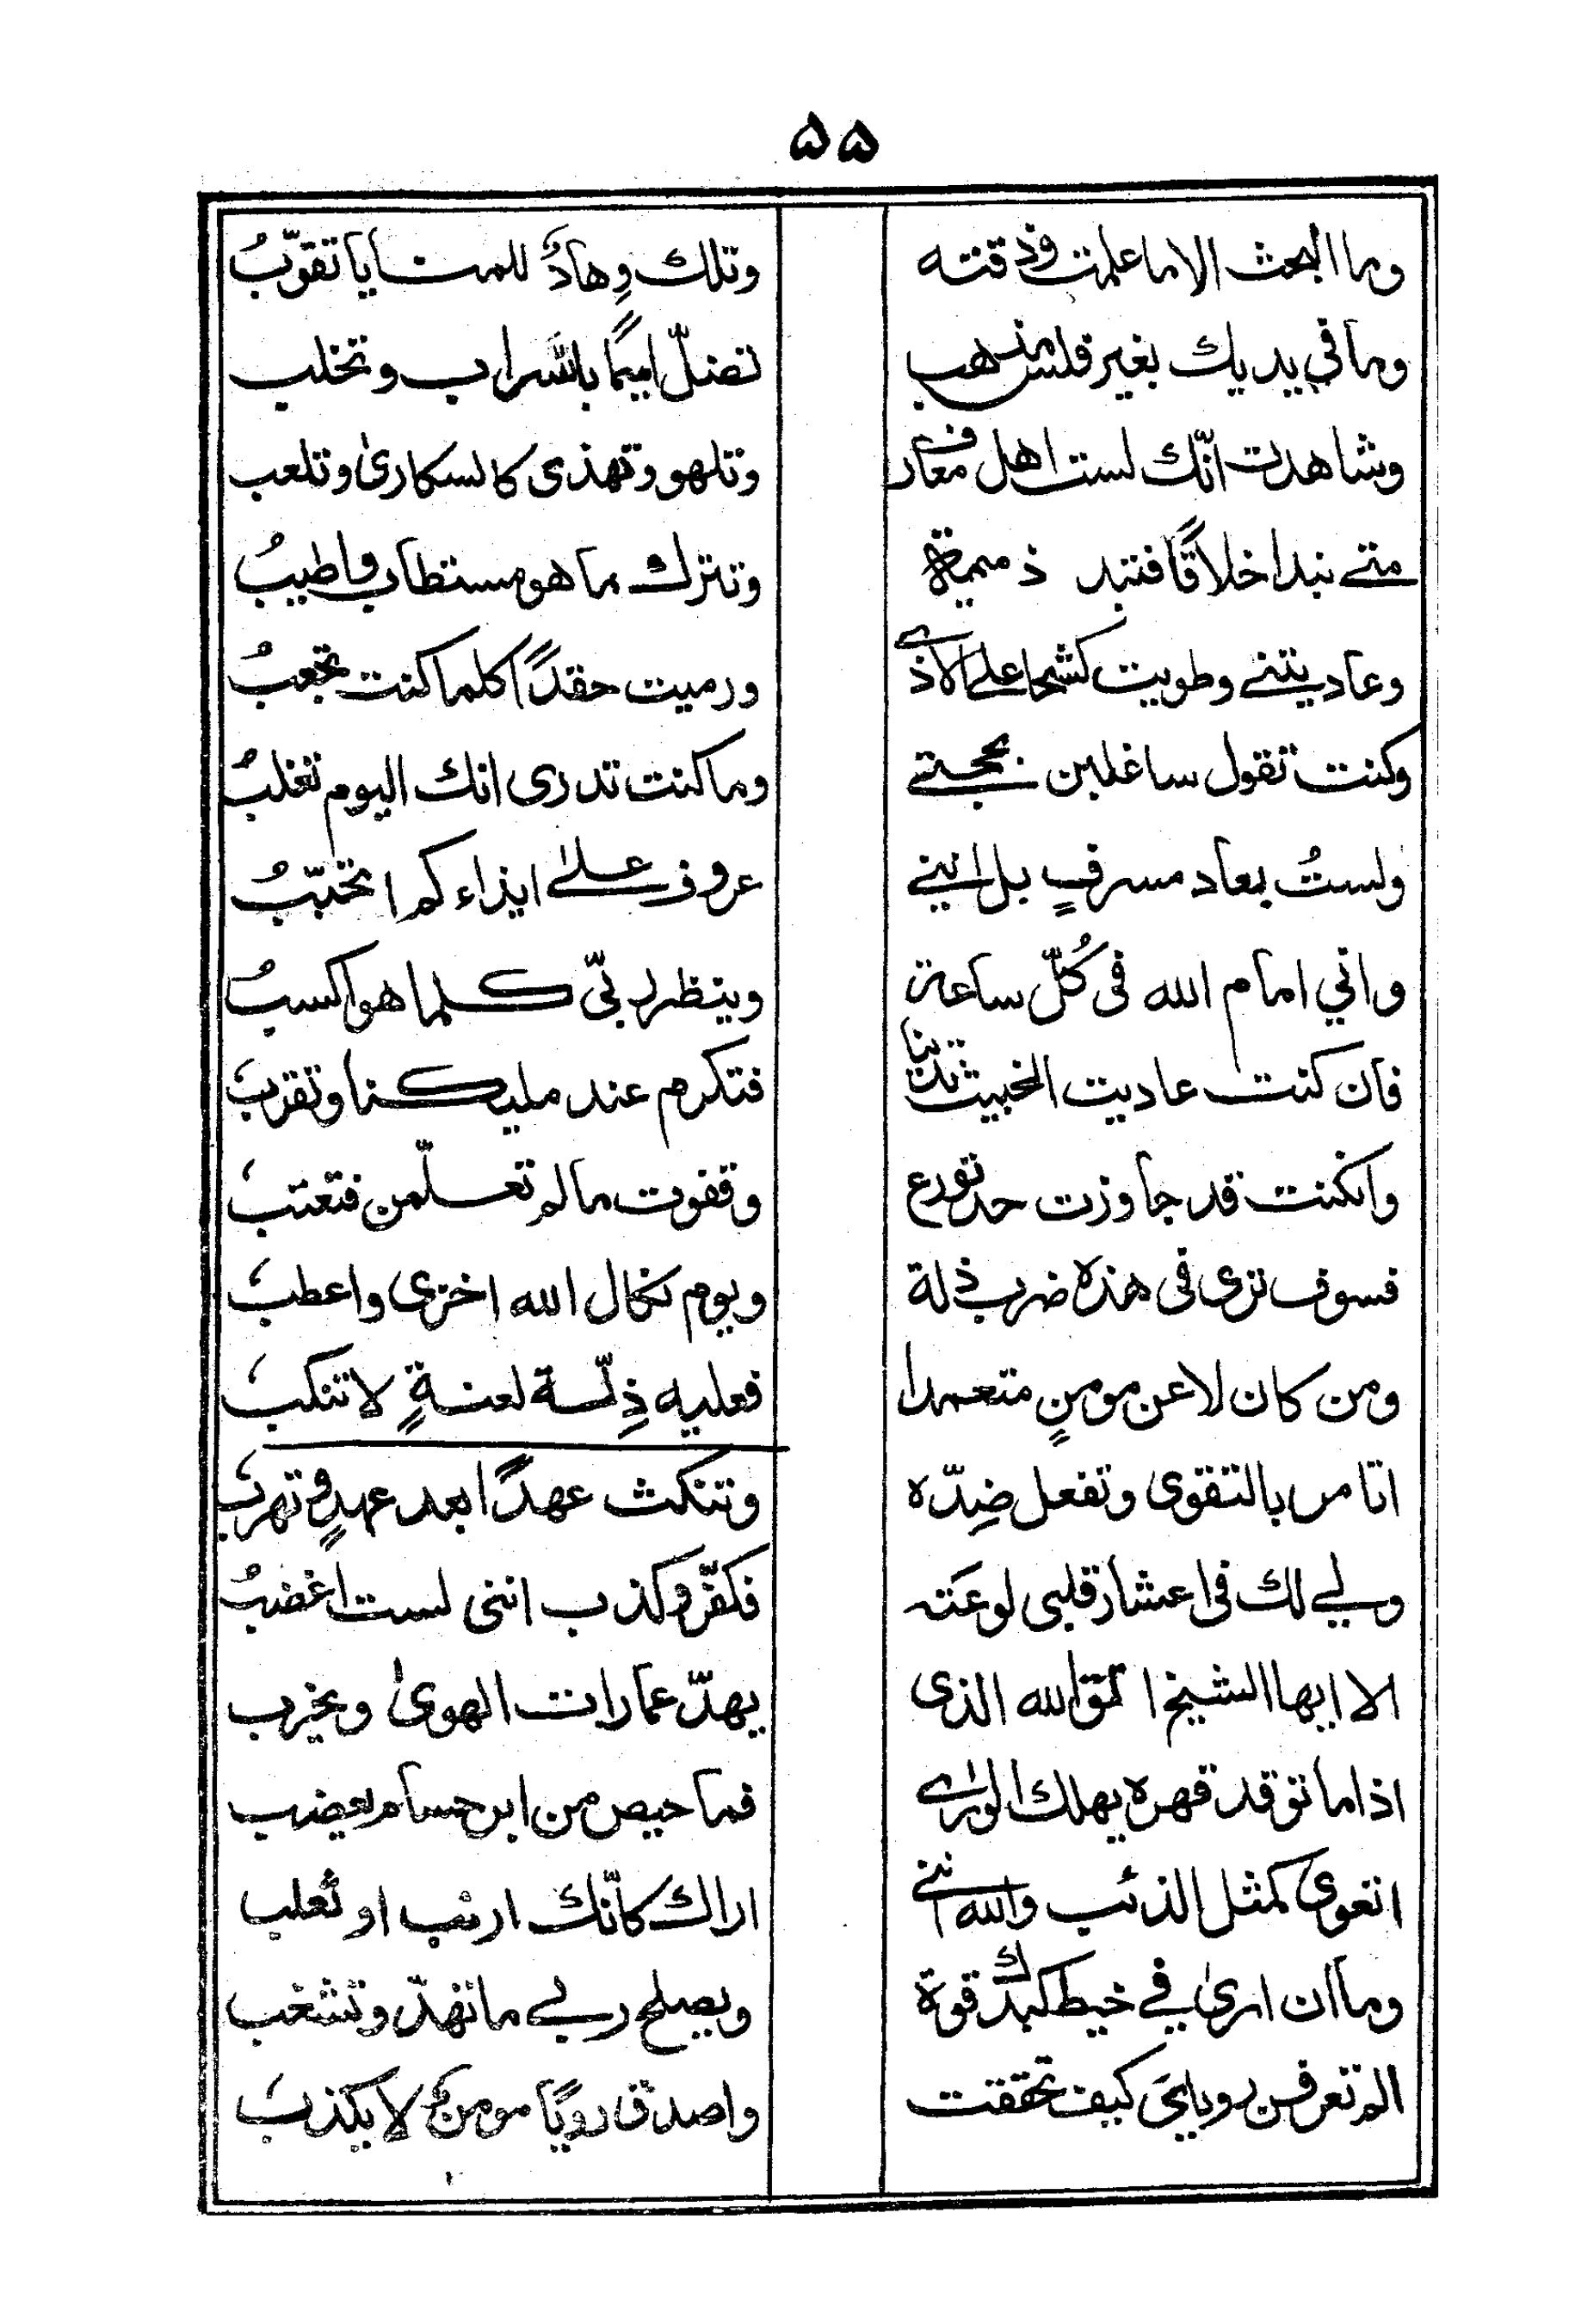 ۵۵
وما البحث الا ما علمت وذقته وتلك وِهادٌ للمنايا تقوّبُ
وما في يديك بغير فلس مذهب تضلّ امیمًا بالسّراب وتخلب
وشاهدت انّك لست اهل معارف وتلهو وتهذی كالسكاریٰ وتلعب
متى نبد اخلاقًا فتبد ذميمة وتترك ما هو مستطاب واطيبُ
وعاديتنى وطويت كشحا على الاذى ورميت حقدًا كلما كنت تجعبُ
وكنت تقول ساغلبن بحجتى وما كنت تدری انك اليوم تغلبُ
ولستُ بعاد مسرفٍ بل اننى عروف علىٰ ايذاءكم اتحبّبُ
واني امام الله فی كُلّ ساعة وينظر ربّي كلما هو اكسبُ
فان كنت عاديت الخبيث تدينا فتكرم عند مليكنا وتقرب
وانكنت قد جاوزت حد تورع وقفوت ما لم تعلّمن فتعتب
فسوف تری فی هذه ضرب ذلة ويوم نكال الله اخزی واعطب
ومن كان لاعن مومنٍ متعمدا فعليه ذِلّة لعنةٍ لا تنكب
اتامر بالتقوی وتفعل ضِدّه وتنكث عهدًا بعد عهدٍ وتهرب
ولى لك فی اعشار قلبی لوعة فكفّر وكذب اننی لست اغضبُ
الا ايها الشيخ اتق الله الذی يهدّ عمارات الهویٰ ويخرب
اذا ما توقد قهره يهلك الورىٰ فما حيص من ابن حسام يعضب
اتعوی كمثل الذئب والله اننى اراك كانّك ارنب او ثعلب
وما ان اریٰ في خيط كبدك قوة ويصلح ربى ما تهدّ وتشغب
الم تعرفن رويای كيف تحققت واصدق رويًا مومن لا يكذب